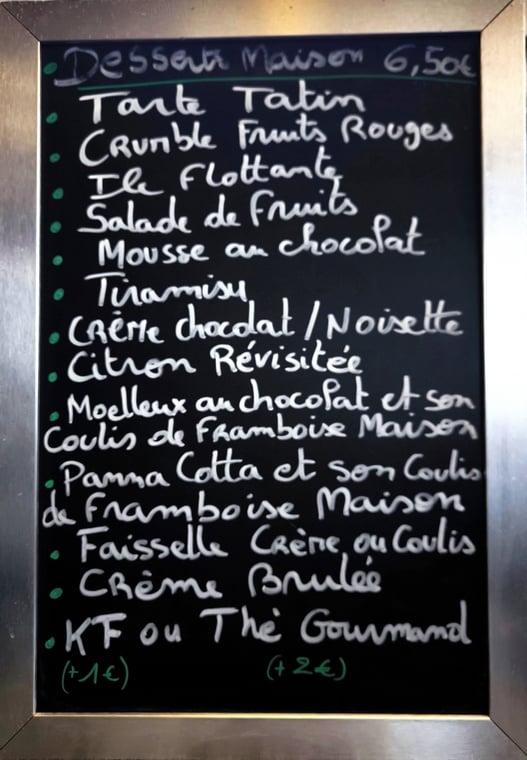 Desserts Maison 6,50€
Tarte Tatin
Crumble Fruits Rouges
Ile Flottante
Salade de Fruits
Mousse au chocolat
Tiramisu
Crème chocolat / Noisette
Citron Révisitée
Moelleux au chocolat et son
Coulis de Framboise Maison
Panna Cotta et son Coulis
de Framboise Maison
Faisselle Crème ou Coulis
Crème Brulée
KF ou Thé Gourmand
(+1€) (+2€)